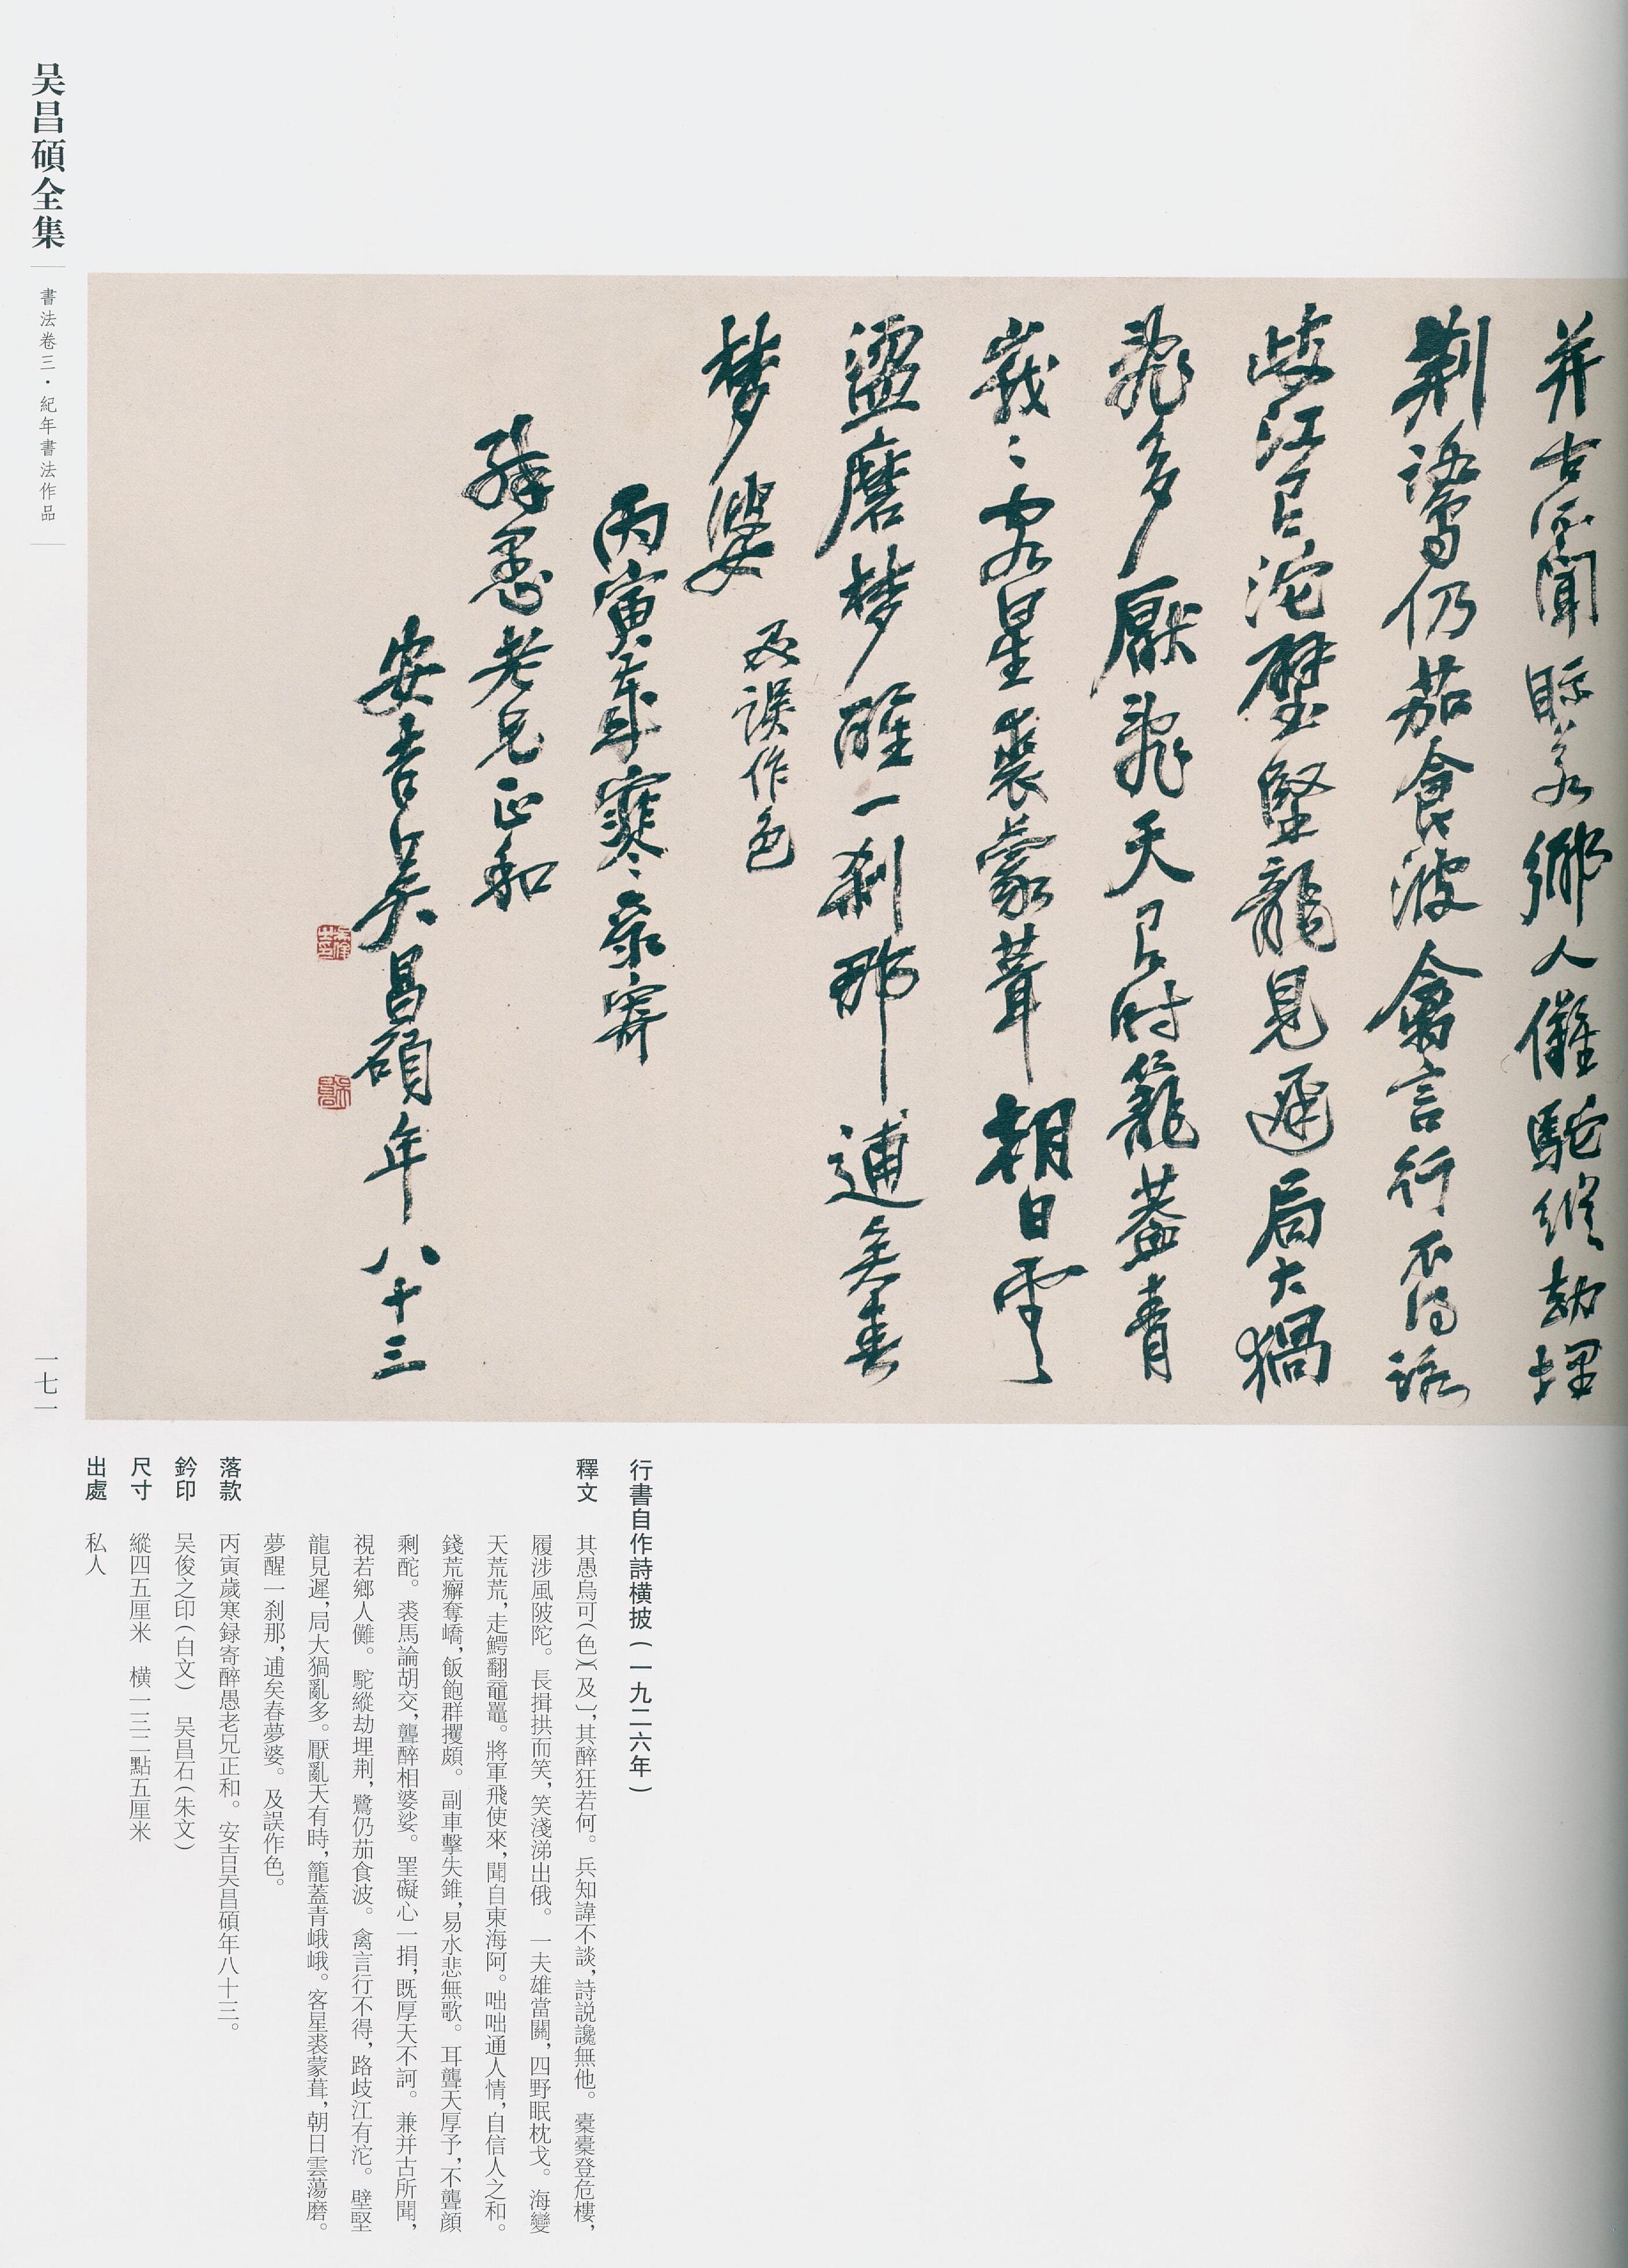 并古所聞眎若鄉人儺駝縱劫埋
荆鷺仍茄食波禽言行不得路
歧江有沱壁堅龍見遲局大猧
亂多厭亂天有時籠蓋青
峩〻客星裘蒙葺朝日雲
盪磨夢醒一刹那逋矣春
夢婆
及誤作色
丙寅歲寒录寄
醉愚老兄正和
安吉吴昌碩年八十三
吴昌碩全集
書法卷三·紀年書法作品
一七一
行書自作詩橫披(一九二六年)
釋文 其愚烏可(色)〔及〕,其醉狂若何。兵知諱不談,詩説讒無他。臺臺登危樓,
履涉風陂陀。長揖拱而笑,笑淺涕出俄。一夫雄當關,四野眠枕戈。海變
天荒荒,走鰐翻黿鼉。將軍飛使來,聞自東海阿。咄咄通人情,自信人之和。
錢荒癬奪嶠,飯飽群攫頗。副車擊失錐,易水悲無歌。耳聾天厚予,不聾顔
剩酡。裘馬論胡交,聾醉相婆娑。罣礙心一捐,既厚天不訶。兼并古所聞,
視若鄉人儺。駝縱劫埋荆,鷺仍茄食波。禽言行不得,路歧江有沱。壁堅
龍見遲,局大猧亂多。厭亂天有時,籠蓋青峨峨。客星裘蒙葺,朝日雲蕩磨。
夢醒一刹那,逋矣春夢婆。及誤作色。
落款 丙寅歲寒録寄醉愚老兄正和。安吉吴昌碩年八十三。
鈐印 吴俊之印(白文) 吴昌石(朱文)
尺寸 縱四五厘米 橫一三二點五厘米
出處 私人